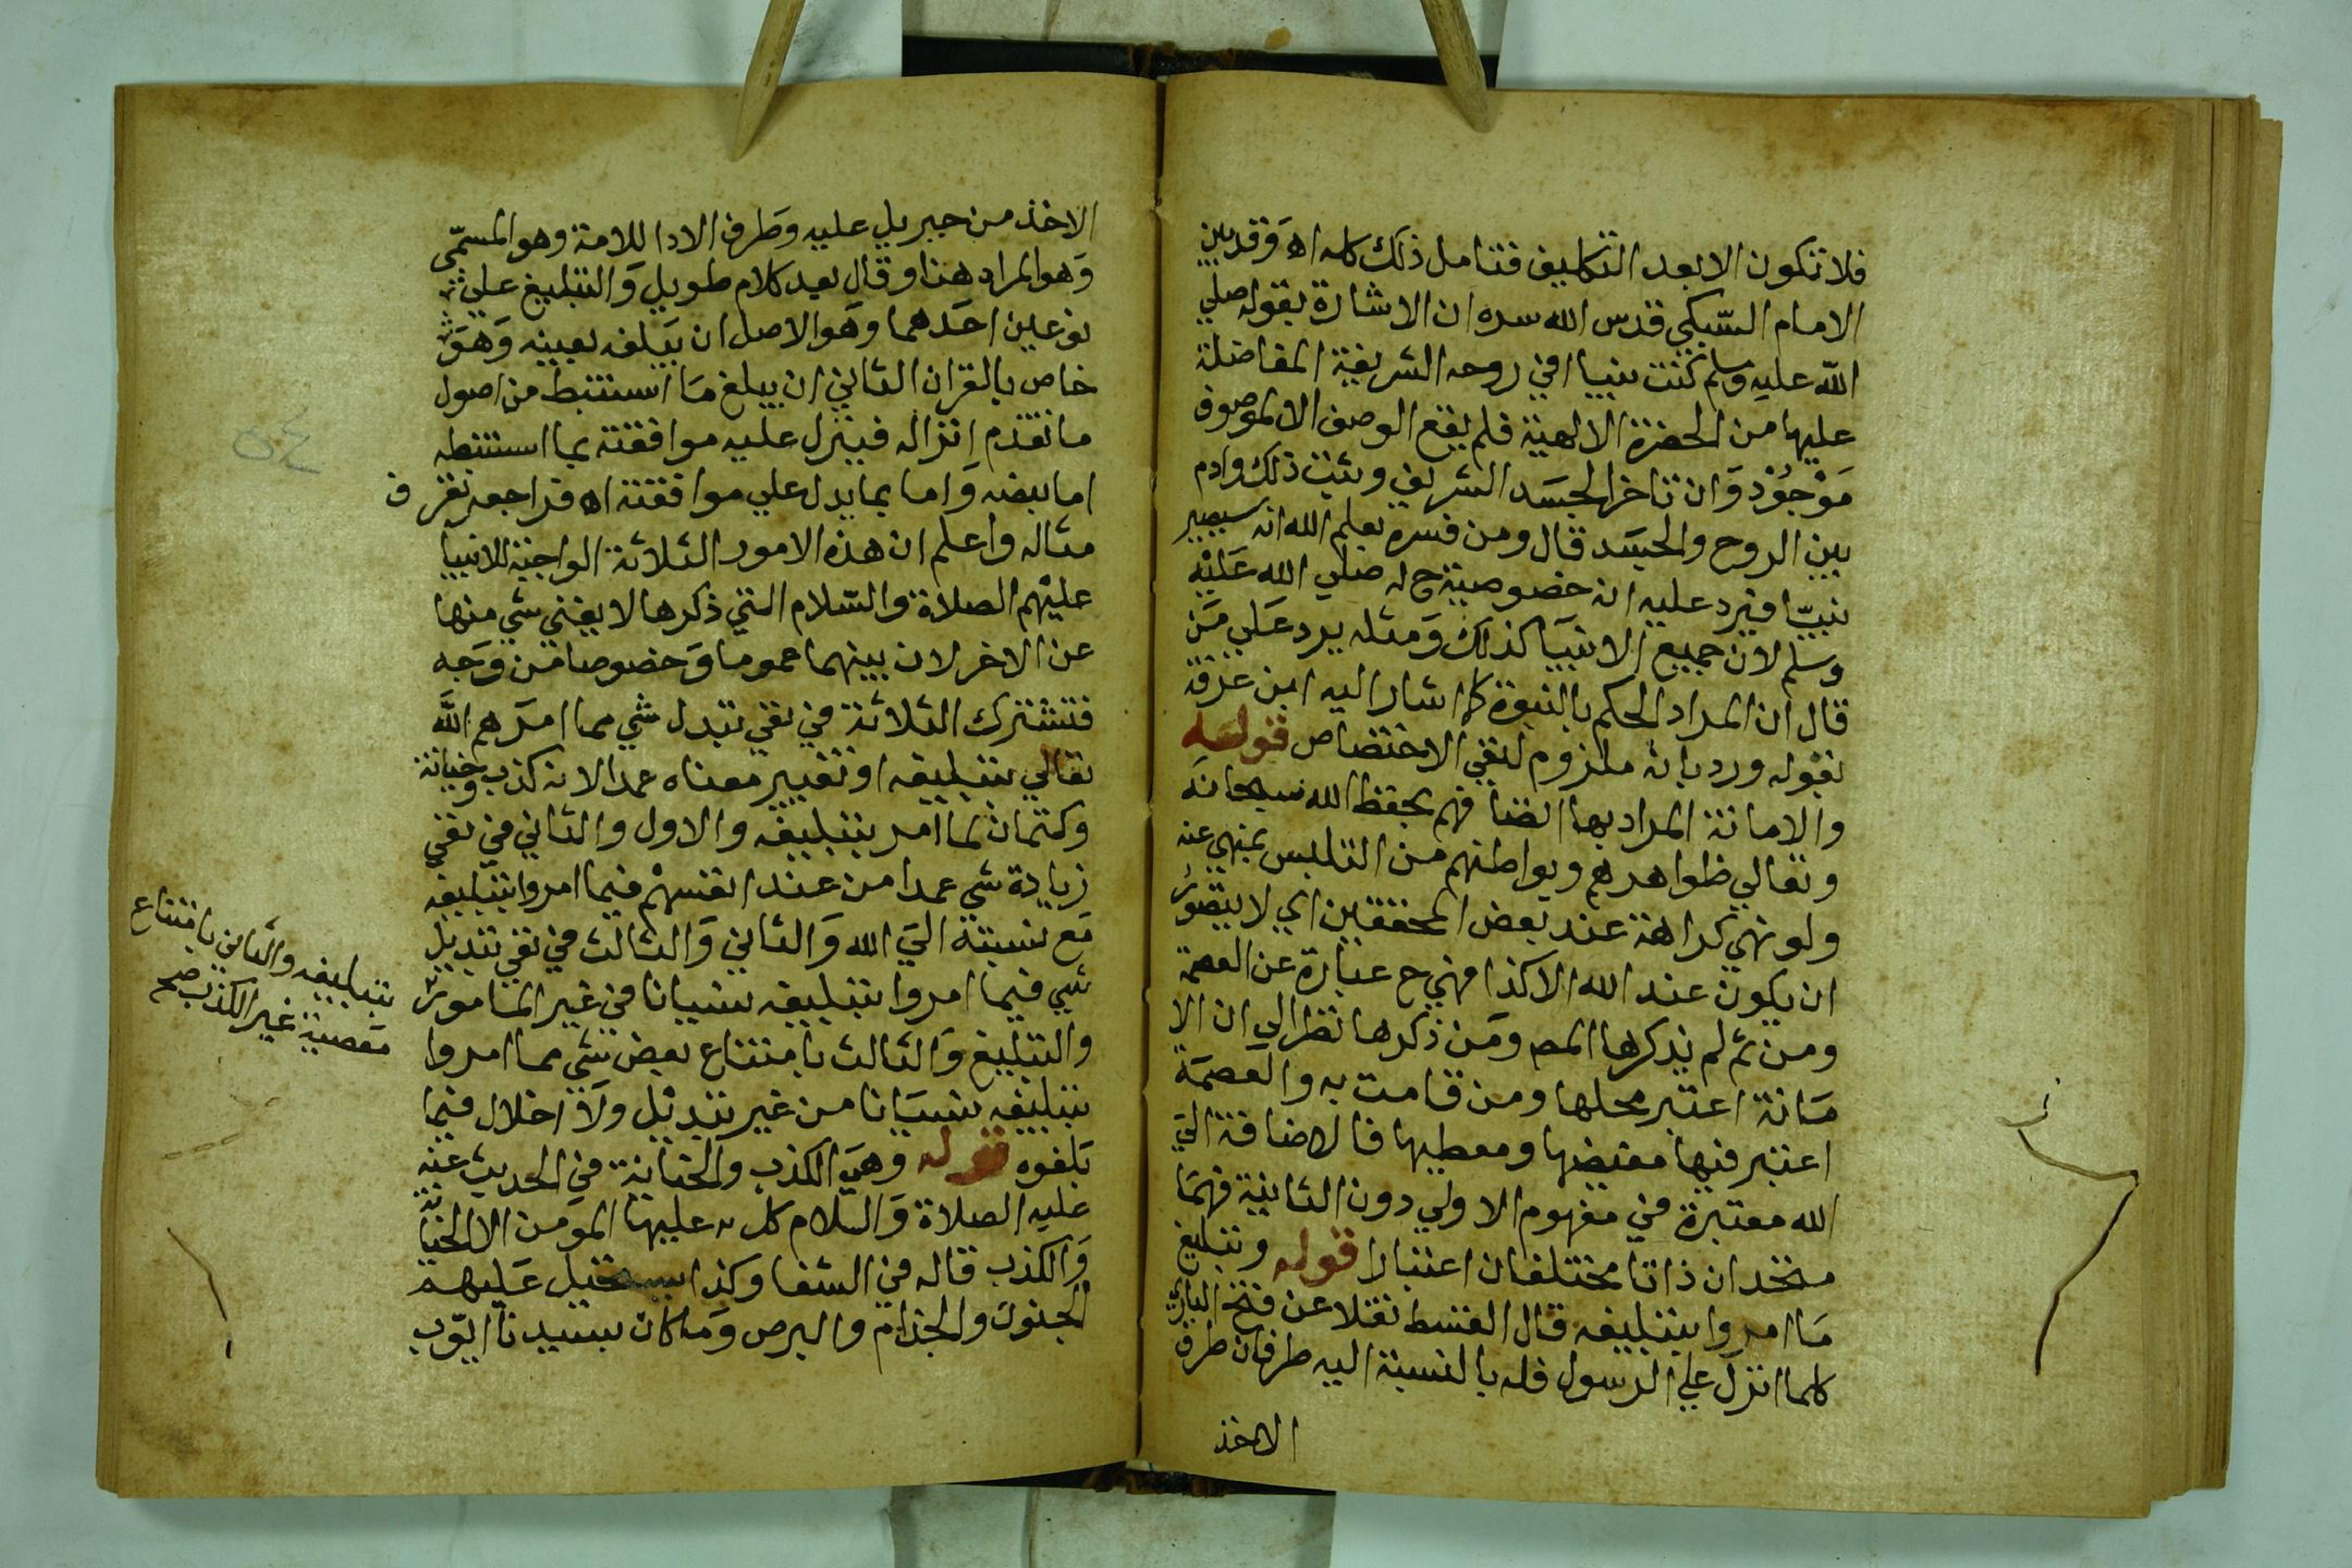 فلا تكون الا بعد التكليف فتامل ذلك كله اه وقد بين
الامام السبكي قدس الله سره ان الاشارة بقوله صلي
الله عليه وسلم كنت نبيا في روحه الشريفة المفاضلة
عليها من الحضرة الالهية فلم يقع الوصف الا لموصوف
موجود وان تاخر الجسد الشريف وثبت ذلك وادم
بين الروح والجسد قال ومن فسره بعلم الله انه سيصير
نبيا فيرد عليه انه خصوصية ح له صلي الله عليه
وسلم لان جميع الانبيا كذلك ومثله يرد علي من
قال ان المراد الحكم بالنبوة كما اشار اليه ابن عرفة
بقوله ورد بانه ملزوم لنفي الاختصاص قوله
والامانة المراد بها ايضا فهم بحفظ الله سبحانه
وتعالي ظواهرهم وبواطنهم من التلبس بمنهي عنه
ولو نهي كراهة عند بعض المحققين اي لا يتصور
ان يكون عند الله الا كذا فهي ح عبارة عن العصمة
ومن ثم لم يذكرها المص ومن ذكرها نظر الي ان الا
مانة اعتبر محلها ومن قامت به والعصمة
اعتبر فيها مفيضها ومعطيها فالاضافة الي
الله معتبرة في مفهوم الاولي دون الثانية فهما
متحدان ذاتا مختلفان اعتبارا قوله وتبليغ
ما امروا بتبليغه قال القسط نقلا عن فتح الباري
كلما انزل علي الرسول فله بالنسبة اليه طرفان طرف
الاخذ
الاخذ من جبريل عليه وطرف الادا للامة وهو المسمى
وهو المراد هنا وقال بعد كلام طويل والتبليغ علي
نوعين احدهما وهو الاصل ان يبلغه بعينه وهو
خاص بالقران الثاني ان يبلغ ما استنبط من اصول
ما تقدم انزاله فينزل عليه موافقته بما استنبطه
اما بنصه واما بما يدل علي موافقته اه فراجعه تعرف
مثاله واعلم ان هذه الامور الثلاثة الواجبة للانبيا
عليهم الصلاة والسلام التي ذكرها لا يغني شي منها
عن الاخر لان بينهما عموما وخصوصا من وجه
فتشترك الثلاثة في نفي تبدل شي مما امرهم الله
تعالي بتبليغه او تغيير معناه عمدا لانه كذب وخيانة
وكتمان لما امر بتبليغه والاول والثاني في نفي
زيادة شي عمدا من عند انفسهم فيما امروا بتبليغه
مع نسبته الي الله والثاني والثالث في نفي تبديل
شي فيما امروا بتبليغه نسيانا في غير المامور
والتبليغ والثالث بامتناع بعض شي مما امروا
بتبليغه نسيانا من غير تبديل ولا اخلال فيما
بلغوه قوله وهي الكذب والخيانة في الحديث عنه
عليه الصلاة والسلام كل عليها المومن الا الخيانة
والكذب قاله في الشفا وكذا يستحيل عليهم
الجنون والجذام والبرص وما كان بسيدنا ايوب
بتبليغه والثاني بامتناع
معصية غير الكذب صح